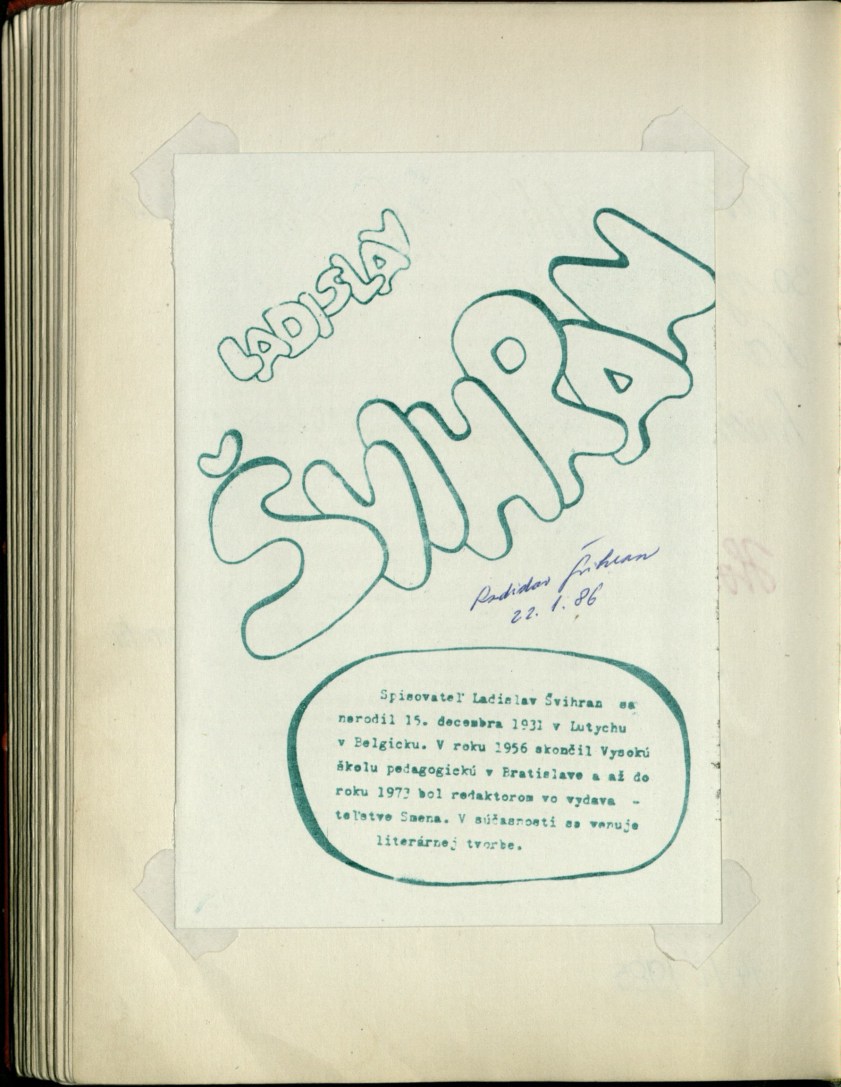 LADISLAV
ŠVIHRAN
Ladislav Švihran
22. 1. 86
Spisovateľ Ladislav Švihran sa
narodil 15. decembra 1931 v Lutychu
v Belgicku. V roku 1956 skončil Vysokú
školu pedagogickú v Bratislave a až do
roku 1973 bol redaktorom vo vydava -
teľstve Smena. V súčasnosti sa venuje
literárnej tvorbe.